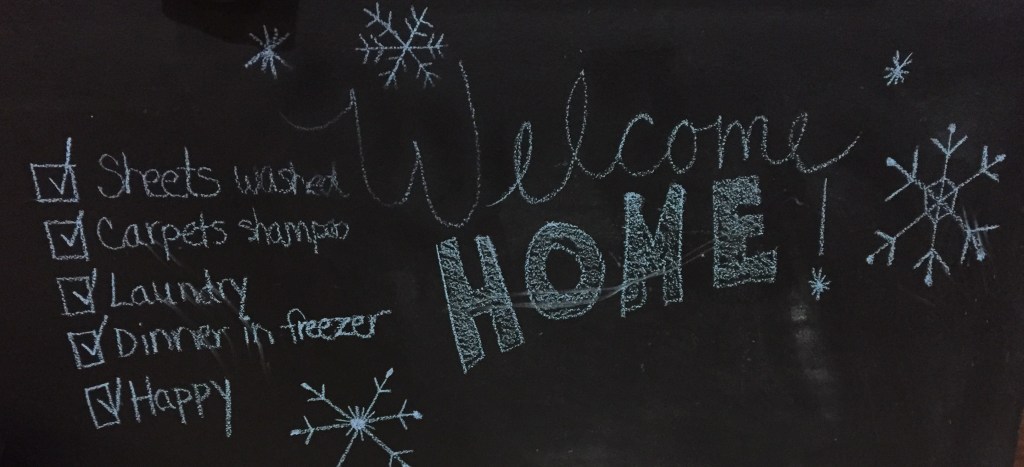 Welcome
HOME!
Sheets washed
Carpets shampoo
Laundry
Dinner in freezer
Happy